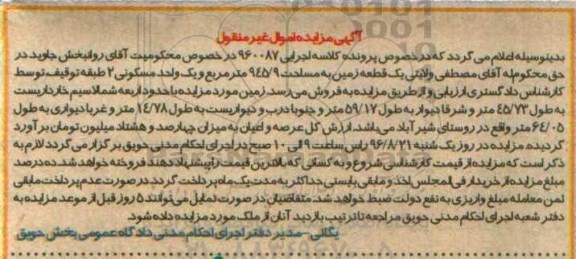 آگهی مزایده اموال غیر منقول
بدینوسیله اعلام می گردد که در خصوص پرونده کلاسه اجرایی ۹۶۰۰۸۷ در خصوص محکومیت آقای روانبخش جاوید در
حق محکوم له آقای مصطفی ولایتی یک قطعه زمین به مساحت ۹۴۵/۹ متر مربع و یک واحد مسکونی ۲ طبقه توقیف، توسط
کارشناس دادگستری ارزیابی و از طریق مزایده به فروش می رسد. زمین مورد مزایده با حدود اربعه شمالا سیم خاردار یست
به طول ۴۵/۷۳ متر و شرقا دیوار به طول ۵۹/۱۷ متر و جنوبا درب و دیواریست به طول ۱۴/۷۸ متر و غربا دیواری به طول
۶۴/۰۵ متر واقع در روستای شیر آباد می باشد. ارزش کل عرصه و اعیان به میزان چهارصد و هشتاد میلیون تومان برآورد
گردیده مزایده در روز یک شنبه ۹۶/۸/۲۱ راس ساعت ۹ الی ۱۰ صبح در اجرای احکام مدنی حویق برگزار می گردد لازم به
ذکر است که مزایده از قیمت کارشناسی شروع و به کسانی که بالاترین قیمت را پیشنهاد دهند فروخته خواهد شد. ده درصد
مبلغ مزایده از خریدار فی المجلس اخذ و مابقی بایستی حداکثر به مدت یک ماه پرداخت گردد در صورت عدم پرداخت مابقی
ثمن معامله مبلغ واریزی به نفع دولت ضبط خواهد شد. متقاضیان در صورت تمایل می توانند ۵ روز قبل از موعد مزایده به
دفتر شعبه اجرای احکام مدنی حویق مراجعه تا ترتیب بازدید آنان از ملک مورد مزایده داده شود.
یگانی - مدیر دفتر اجرای احکام مدنی دادگاه عمومی بخش حویق